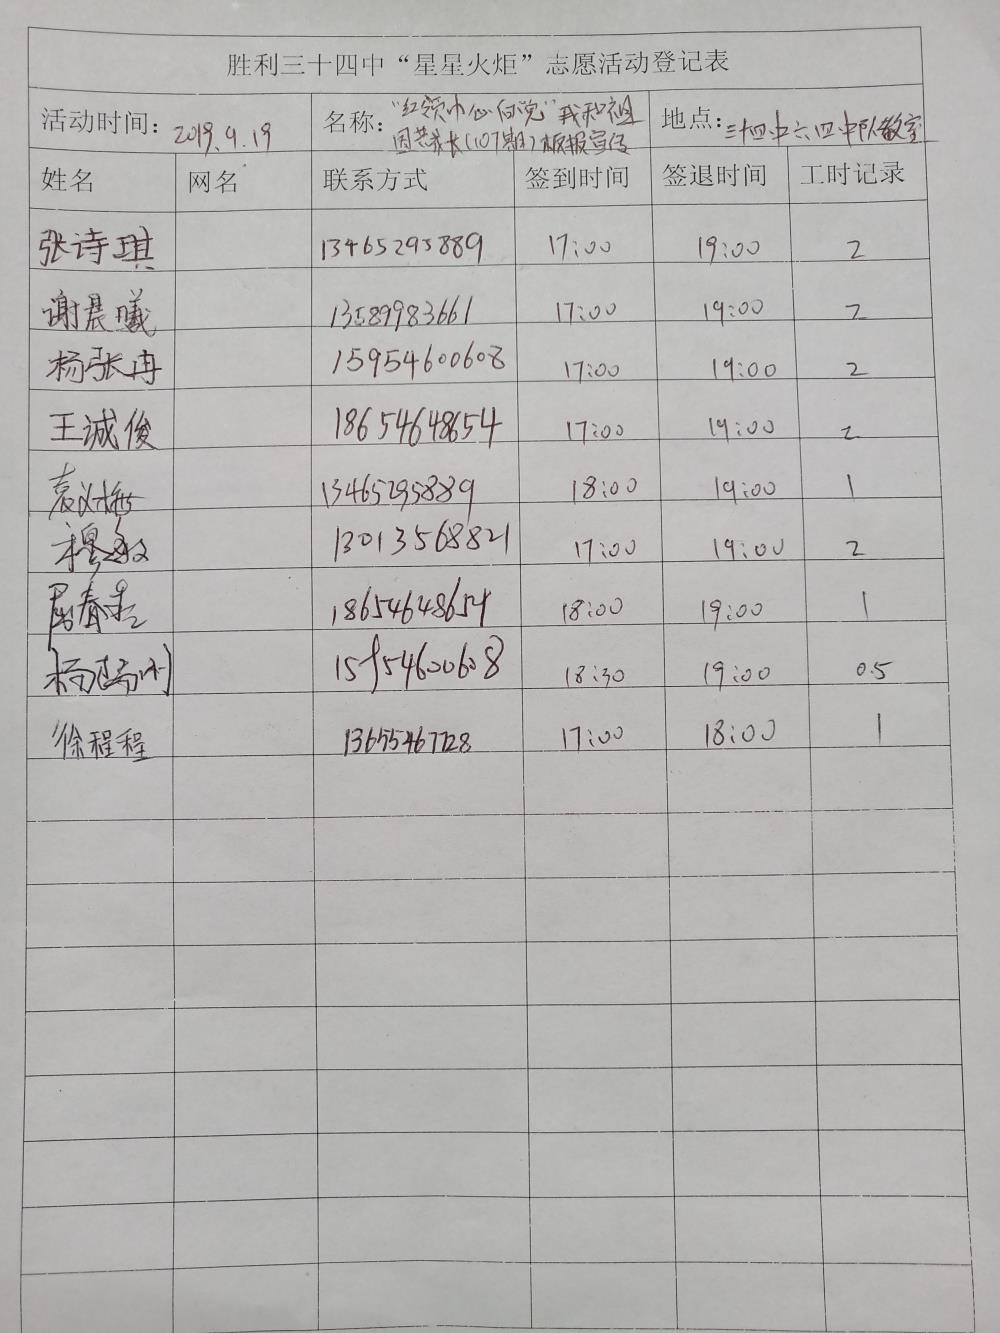 胜利三十四中“星星火炬”志愿活动登记表
活动时间: 2019.9.19 名称: “红领巾心向党”我和祖国共成长(107期)板报宣传 地点: 三十四中六.四中队教室
姓名 网名 联系方式 签到时间 签退时间 工时记录
张诗琪 13465295889 17:00 19:00 2
谢晨曦 13589983661 17:00 19:00 2
杨张冉 15954600608 17:00 19:00 2
王诚俊 18654648654 17:00 19:00 2
13465295889 18:00 19:00 1
穆敏 13013568821 17:00 19:00 2
18654648654 18:00 19:00 1
15954600608 18:30 19:00 0.5
徐程程 13655467728 17:00 18:00 1